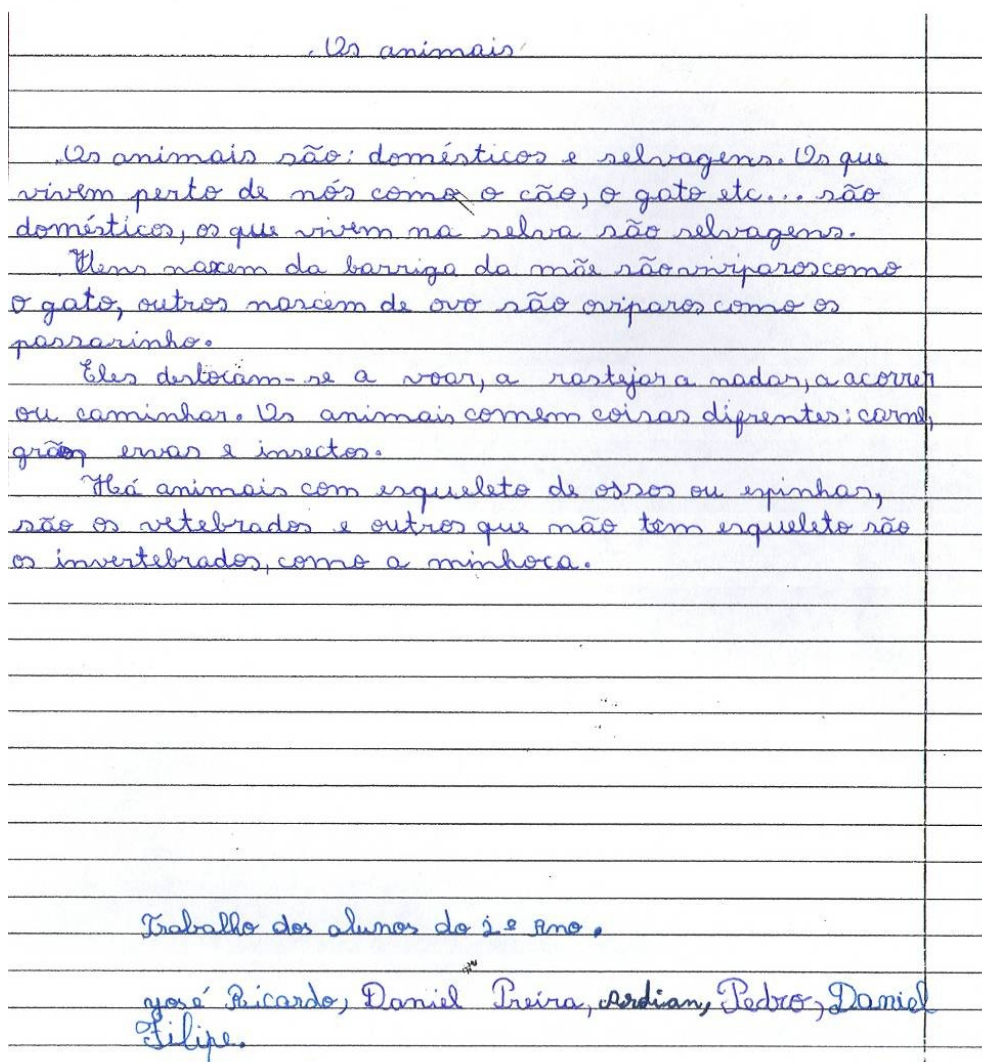 Os animais
Os animais são: domésticos e selvagens. Os que
vivem perto de nós como o cão, o gato etc... são
domésticos, os que vivem na selva são selvagens.
Uens naxem da barriga da mãe sãoviviparoscomo
o gato, outros nascem de ovo são oviparos como os
passarinho.
Eles deslocam-se a voar, a rastejar a nadar, a acorrer
ou caminhar. Os animais comem coisas difrentes: carne,
grão, ervas e insectos.
Há animais com esqueleto de ossos ou espinhas,
são os vetebrados e outros que não tem esqueleto são
os invertebrados, como a minhoca.
Trabalho dos alunos do 2º Ano.
José Ricardo, Daniel Preira, Ardian, Pedro, Daniel
Filipe.